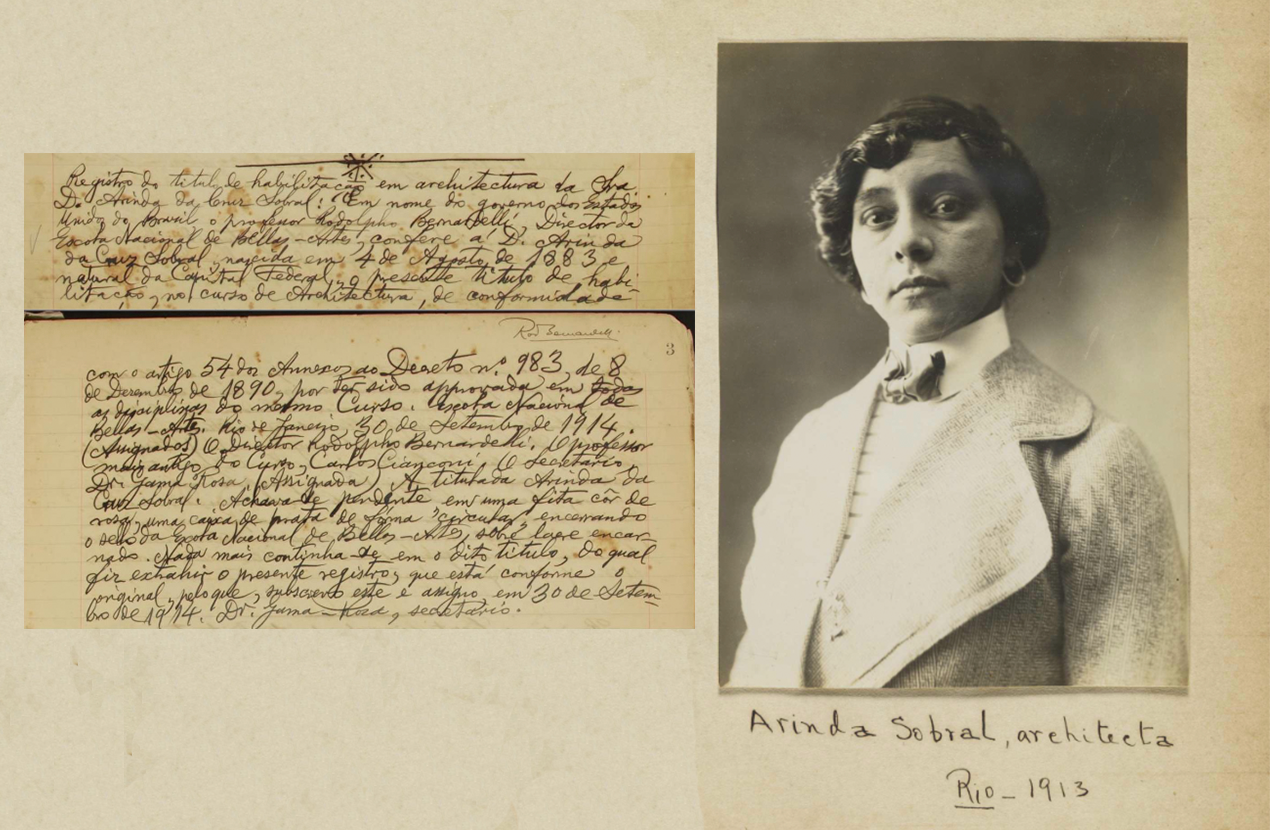 Registro do titulo de habilitação em architectura da Sra.
D. Arinda da Cruz Sobral: "Em nome do governo dos Estados
Unidos do Brasil o professor Rodolpho Bernardelli, Director da
Escola Nacional de Bellas-Artes, confere a D. Arinda
da Cruz Sobral, nascida em 4 de Agosto de 1883, e
natural da Capital Federal, o presente titulo de habi-
litação, no curso de Architectura, de conformidade
Rod Bernardelli
3
com o artigo 54 dos Annexos ao Decreto n.º 983, de 8
de Dezembro de 1890, por ter sido approvada em todas
as disciplinas do mesmo Curso. Escola Nacional de
Bellas-Artes. Rio de Janeiro, 30 de Setembro de 1914.
(Assignados) O Director Rodolpho Bernardelli. O professor
mais antigo do Curso, Carlos Cianconi. O Secretario,
Dr. Gama Rosa, (Assignada) A titulada Arinda da
Cruz Sobral. Achava-se pendente em uma fita côr de
rosa, uma caixa de prata de fórma circular, encerrando
o sello da Escola Nacional de Bellas-Artes, sobre lacre encar-
nado. Nada mais continha-se em o dito titulo, do qual
fiz extrahir o presente registro, que está conforme o
original, pelo que, subscrevo este e assigno, em 30 de Setem-
bro de 1914. Dr. Gama-Rosa, secretario.
Arinda Sobral, architecta
Rio - 1913